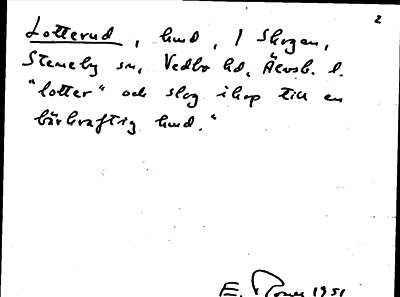 2
Lotterud, hmd, i Skogen,
Steneby sn, Vedbo hd, Älvsb. l.
"lotter" och slog ihop till en
bärkraftig hmd."
E. 1951